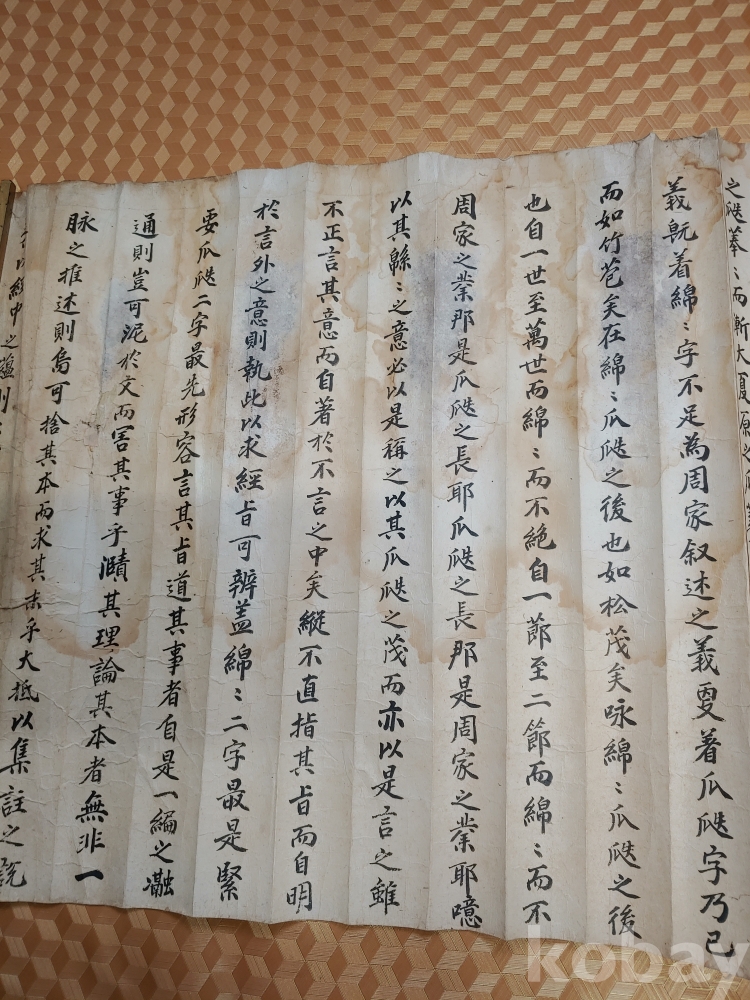 之瓞菶〻而漸大
義旣着綿〻字不足為周家叙述之義更着瓜瓞字乃已
而如竹苞矣在綿〻瓜瓞之後也如松茂矣咏綿〻瓜瓞之後
也自一世至萬世而綿〻而不絶自一節至二節而綿〻而不
周家之業那是瓜瓞之長耶瓜瓞之長那是周家之業耶噫
以其緜〻之意必以是稱之以其瓜瓞之茂而亦以是言之雖
不正言其意而自著於不言之中矣縱不直指其旨而自明
於言外之意則執此以求經旨可辨盖綿〻二字最是緊
要瓜瓞二字最先形容言其旨道其事者自是一編之瀜
通則豈可泥於文而害其事乎賾其理論其本者無非一
脉之推述則烏可捨其本而求其末乎大抵以集註之説
以經中之蘊則
kobay